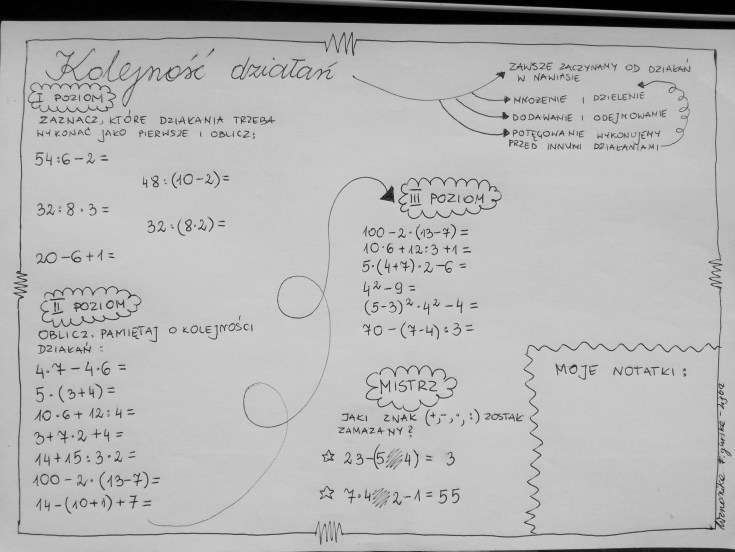 Kolejność działań
ZAWSZE ZACZYNAMY OD DZIAŁAŃ
W NAWIASIE
MNOŻENIE I DZIELENIE
DODAWANIE I ODEJMOWANIE
POTĘGOWANIE WYKONUJEMY
PRZED INNYMI DZIAŁANIAMI
I POZIOM
ZAZNACZ, KTÓRE DZIAŁANIA TRZEBA
WYKONAĆ JAKO PIERWSZE I OBLICZ:
54:6-2=
48:(10-2)=
32:8·3=
32:(8·2)=
20-6+1=
II POZIOM
OBLICZ. PAMIĘTAJ O KOLEJNOŚCI
DZIAŁAŃ:
4·7-4·6=
5·(3+4)=
10·6+12:4=
3+7·2+4=
14+15:3·2=
100-2·(13-7)=
14-(10+1)+7=
III POZIOM
100-2·(13-7)=
10·6+12:3+1=
5·(4+7)·2-6=
4²-9=
(5-3)²·4²-4=
70-(7-4):3=
MISTRZ
JAKI ZNAK (+,-,·,:) ZOSTAŁ
ZAMAZANY?
23-(5 4)= 3
7·4 2-1=55
MOJE NOTATKI: